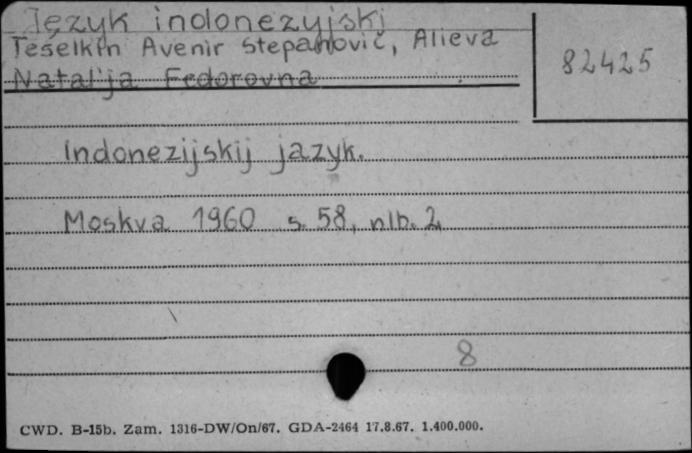 Język indonezyjski
Teselkin Avenir Stepanovič, Alieva
Natal'ja Fedorovna
82425
Indonezijskij jazyk.
Moskva 1960 s. 58, nlb. 2
8
CWD. B-15b. Zam. 1316-DW/On/67. GDA-2464 17.8.67. 1.400.000.